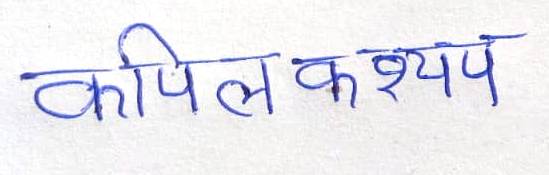 कपिल कश्यप